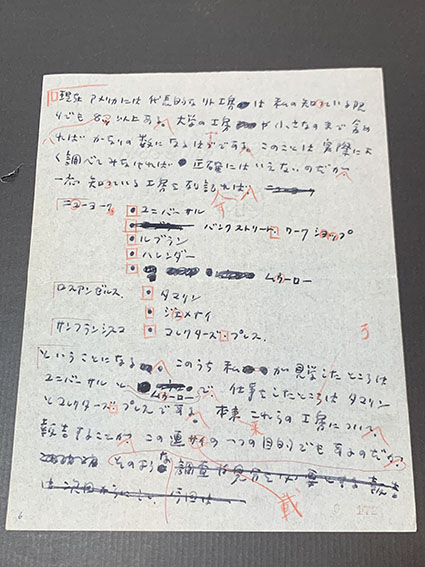 現在 アメリカには 代表的なリト工房は 私の知っている限
りでも 8つ 以上ある。大学の工房が小さなのまで含め
ればかなりの数になるはずである。このことは実際によ
く調べてみなければ 正確にはいえないのだが
一応 知っている工房を列記すれば、
ニューヨーク
・ユニバーサル
・バンクストリート・ワークショップ
・ルブラン
・ハレンダー
・ムウーロー
ロスアンゼルス.
・タマリン
・ジェメナイ
サンフランシスコ
・コレクターズ・プレス.
ということになる。このうち 私が見学したところは
ユニバーサルと、ムウーローで、仕事をしたところはタマリン
とコレクターズ・プレスである。本来これらの工房について
報告することが この連サイの一つの目的でもあるのだが
そのような調査や見学
は次回からにして、今回は
載
6